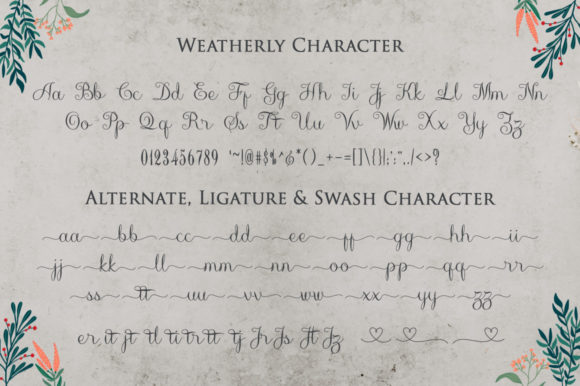 WEATHERLY CHARACTER
Aa Bb Cc Dd Ee Ff Gg Hh Ii Jj Kk Ll Mm Nn
Oo Pp Qq Rr Ss Tt Uu Vv Ww Xx Yy Zz
0123456789 '~!@#$%^&*()_+-=[]\{}|;:",./<>?
ALTERNATE, LIGATURE & SWASH CHARACTER
aa bb cc dd ee ff gg hh ii
jj kk ll mm nn oo pp qq rr
ss tt uu vv ww xx yy zz
er, tt ft tl ti tr tt tj Jr Js Jt Jz